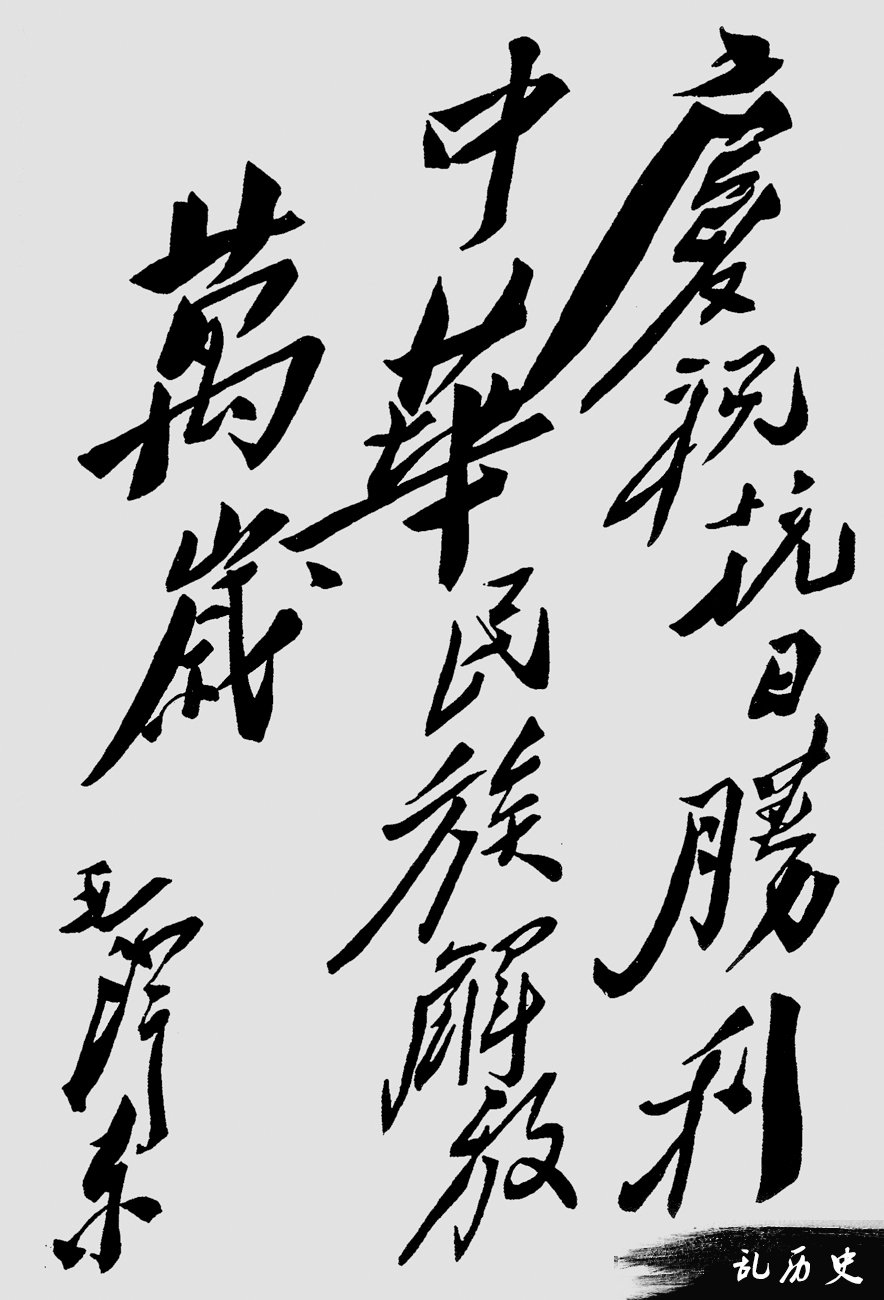 慶祝抗日勝利
中華民族解放
萬歲
毛澤东
乱历史